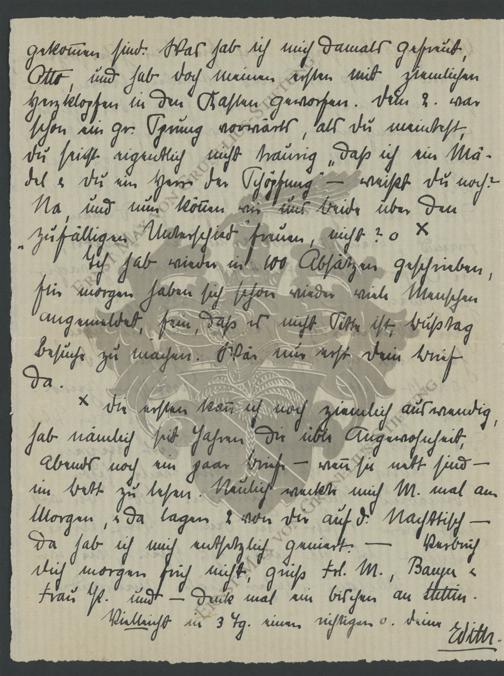 gekommen sind. Was hab ich mich damals gefreut,
Otto, und hab doch meinen ersten mit ziemlichen
Herzklopfen in den Kasten geworfen. Dein 2. war
schon ein gr. Sprung vorwärts, als Du meintest,
Du seist eigentlich nicht traurig „daß ich ein Mä-
del & Du ein Herr der Schöpfung" – weißt Du noch?
Na, und nun können wir uns beide über den
„zufälligen Unterschied freuen, nicht? o x
Ich hab wieder in 100 Absätzen geschrieben,
für morgen haben sich schon wieder viele Menschen
angemeldet, fein, daß es nicht Sitte ist, Bußtag
Besuche zu machen. Wär nur erst Dein Brief
da.
x Die ersten kann ich noch ziemlich auswendig,
hab nämlich seit Jahren die üble Angewohnheit,
Abends noch ein paar Briefe – wenn sie nett sind –
im Bett zu lesen. Neulich weckte mich M. mal am
Morgen, & da lagen 2 von Dir auf d. Nachttisch –
da hab ich mich entsetzlich geniert. –
Dich morgen früh nicht, grüß Frl. M., &
Frau und – denk mal ein bischen an Stettin.
Vielleicht in 3 Tg. einen richtigen o. Deine
Edith.